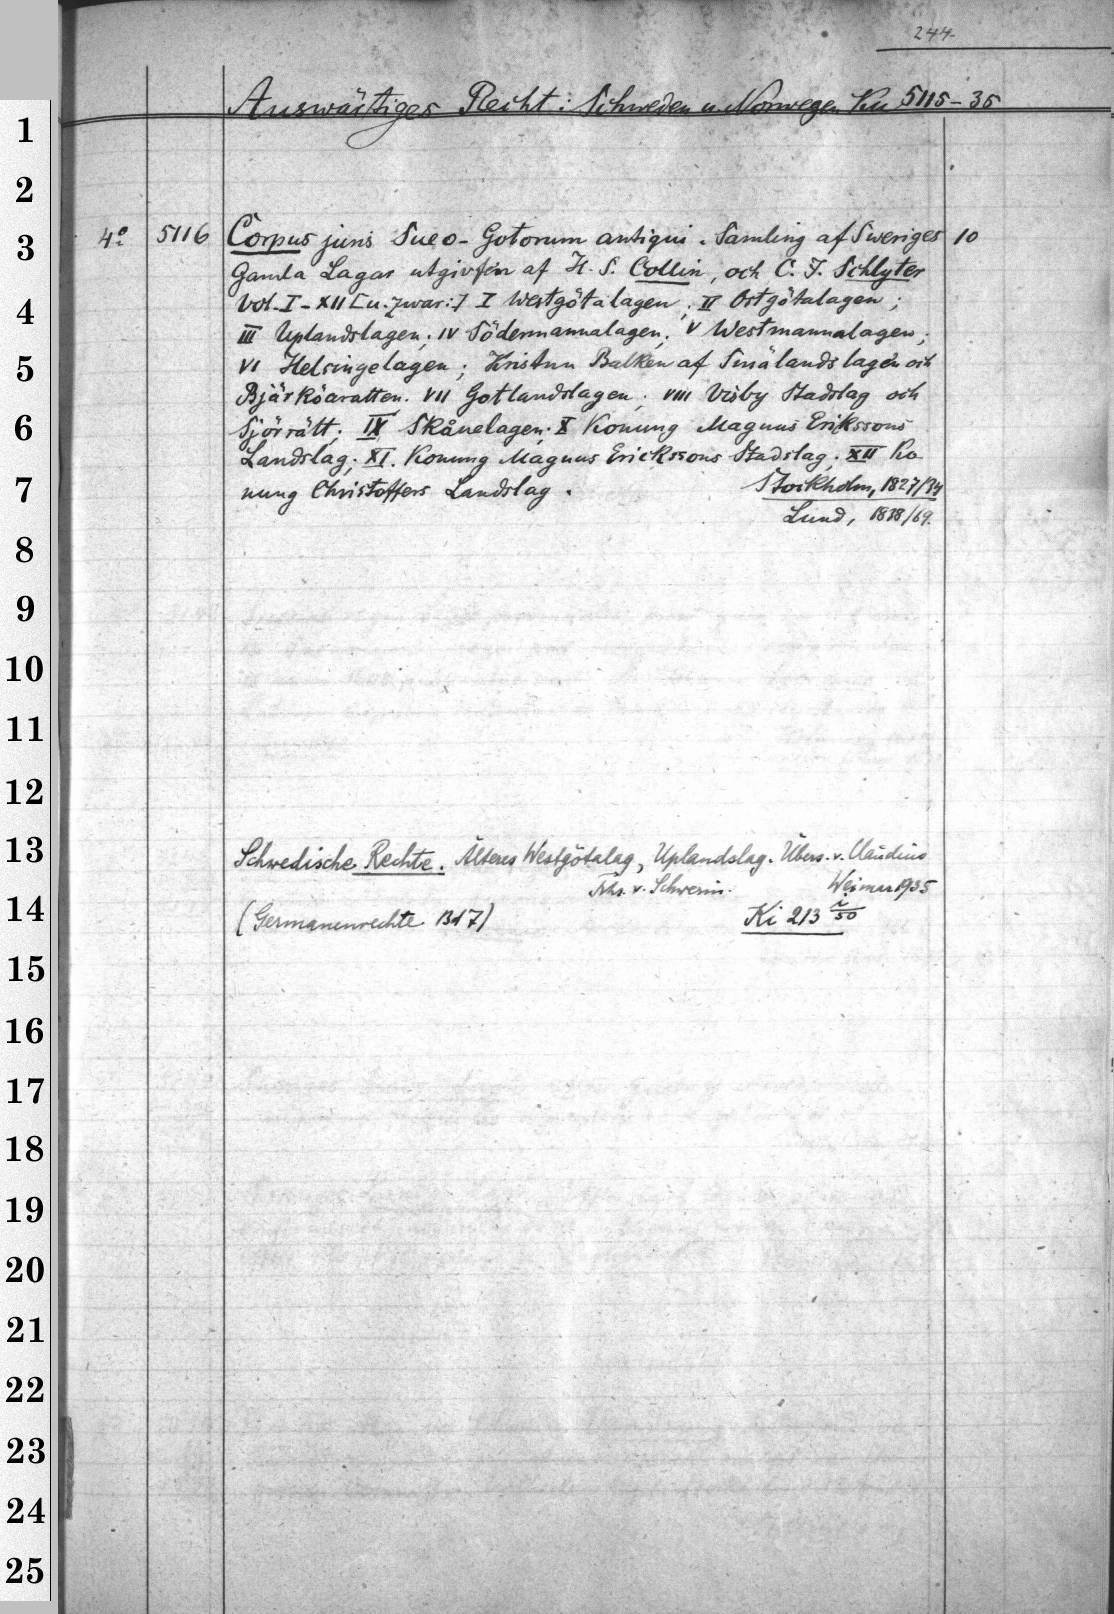 244
Auswärtiges Recht: Schweden u. Norwegen Ku 5115-35
4° 5116 Corpus juris Sueo-Gotorum antiqui. Samling af Sweriges 10
Gamla Lagar utgivfen af H. S. Collin, och C. J. Schlyter
Vol. I-XII [u. zwar:] I Westgötalagen; II Ostgötalagen;
III Uplandslagen; IV Södermannalagen; V Westmannalagen;
VI Helsingelagen; Kristnu Balken af Smålandslagen och
Bjärköaratten. VII Gotlandslagen; VIII Visby Stadslag och
Sjörrätt; IX Skånelagen; X Konung Magnus Erikssons
Landslag; XI. Konung Magnus Erickssons Stadslag; XII Ko-
nung Christoffers Landslag.
Stockholm, 1827/34
Lund, 1838/69.
Schwedische Rechte. Älteres Westgötalag, Uplandslag. Übers. v. Claudius
Frhr. v. Schwerin.
Weimar 1935
(Germanenrechte Bd 7)
Ki 213 50
1
2
3
4
5
6
7
8
9
10
11
12
13
14
15
16
17
18
19
20
21
22
23
24
25